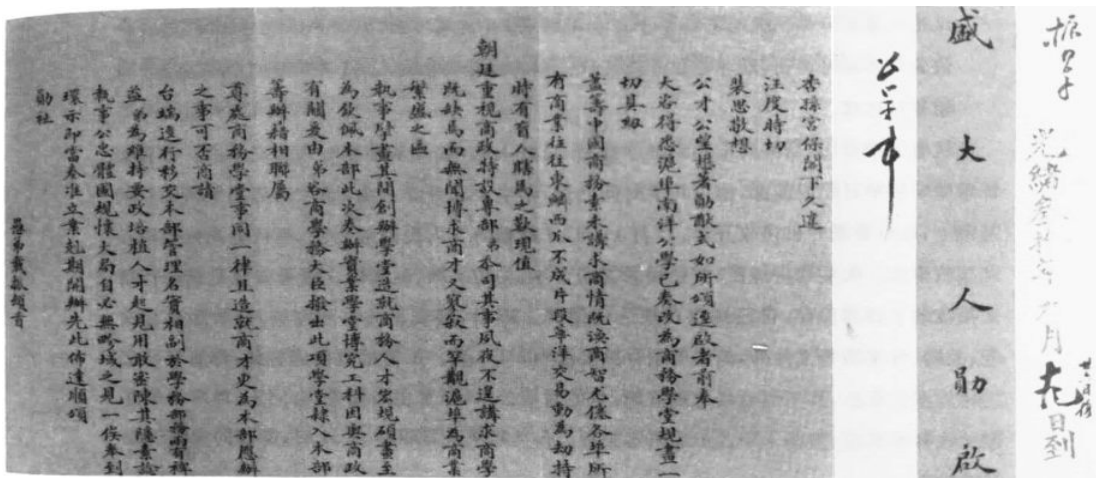 振貝子
光緒叁拾年六月日到
盛大人勛啟
杏孫宮保閣下久違
汪度時切
裴思敬想
公才公望楙著勛猷式如所頌逕啟者前奉
大咨得悉滬埠南洋公學已奏改為商務學堂規畫一
切具紉
蓋籌中國商務素未講求商情既渙商智尤僿各埠所
有商業往往東鱗西爪不成片段華洋交易動為劫持
時有盲人瞎馬之歎現值
朝廷重視商政特設專部弟忝司其事夙夜不遑講求商學
既缺焉而無聞博求商才又寂寂而罕覯滬埠為商業
繁盛之區
執事擘畫其間創辦學堂造就商務人才宏規碩畫至
為欽佩本部此次奏辦實業學堂博究工科因與商政
有關爰由弟咨商學務大臣撥出此項學堂隸入本部
籌辦藉相聯屬
尊處商務學堂事同一律且造就商才更為本部應辦
之事可否商請
台端逕行移交本部管理名實相副於學務部務兩有裨
益弟為維持要政培植人才起見用敢密陳其隱素諗
執事公忠體國規懷大局自必無畛域之見一俟奉到
環示即當奏准立案尅期開辦先此佈達順頌
勛社
愚弟載振頓首